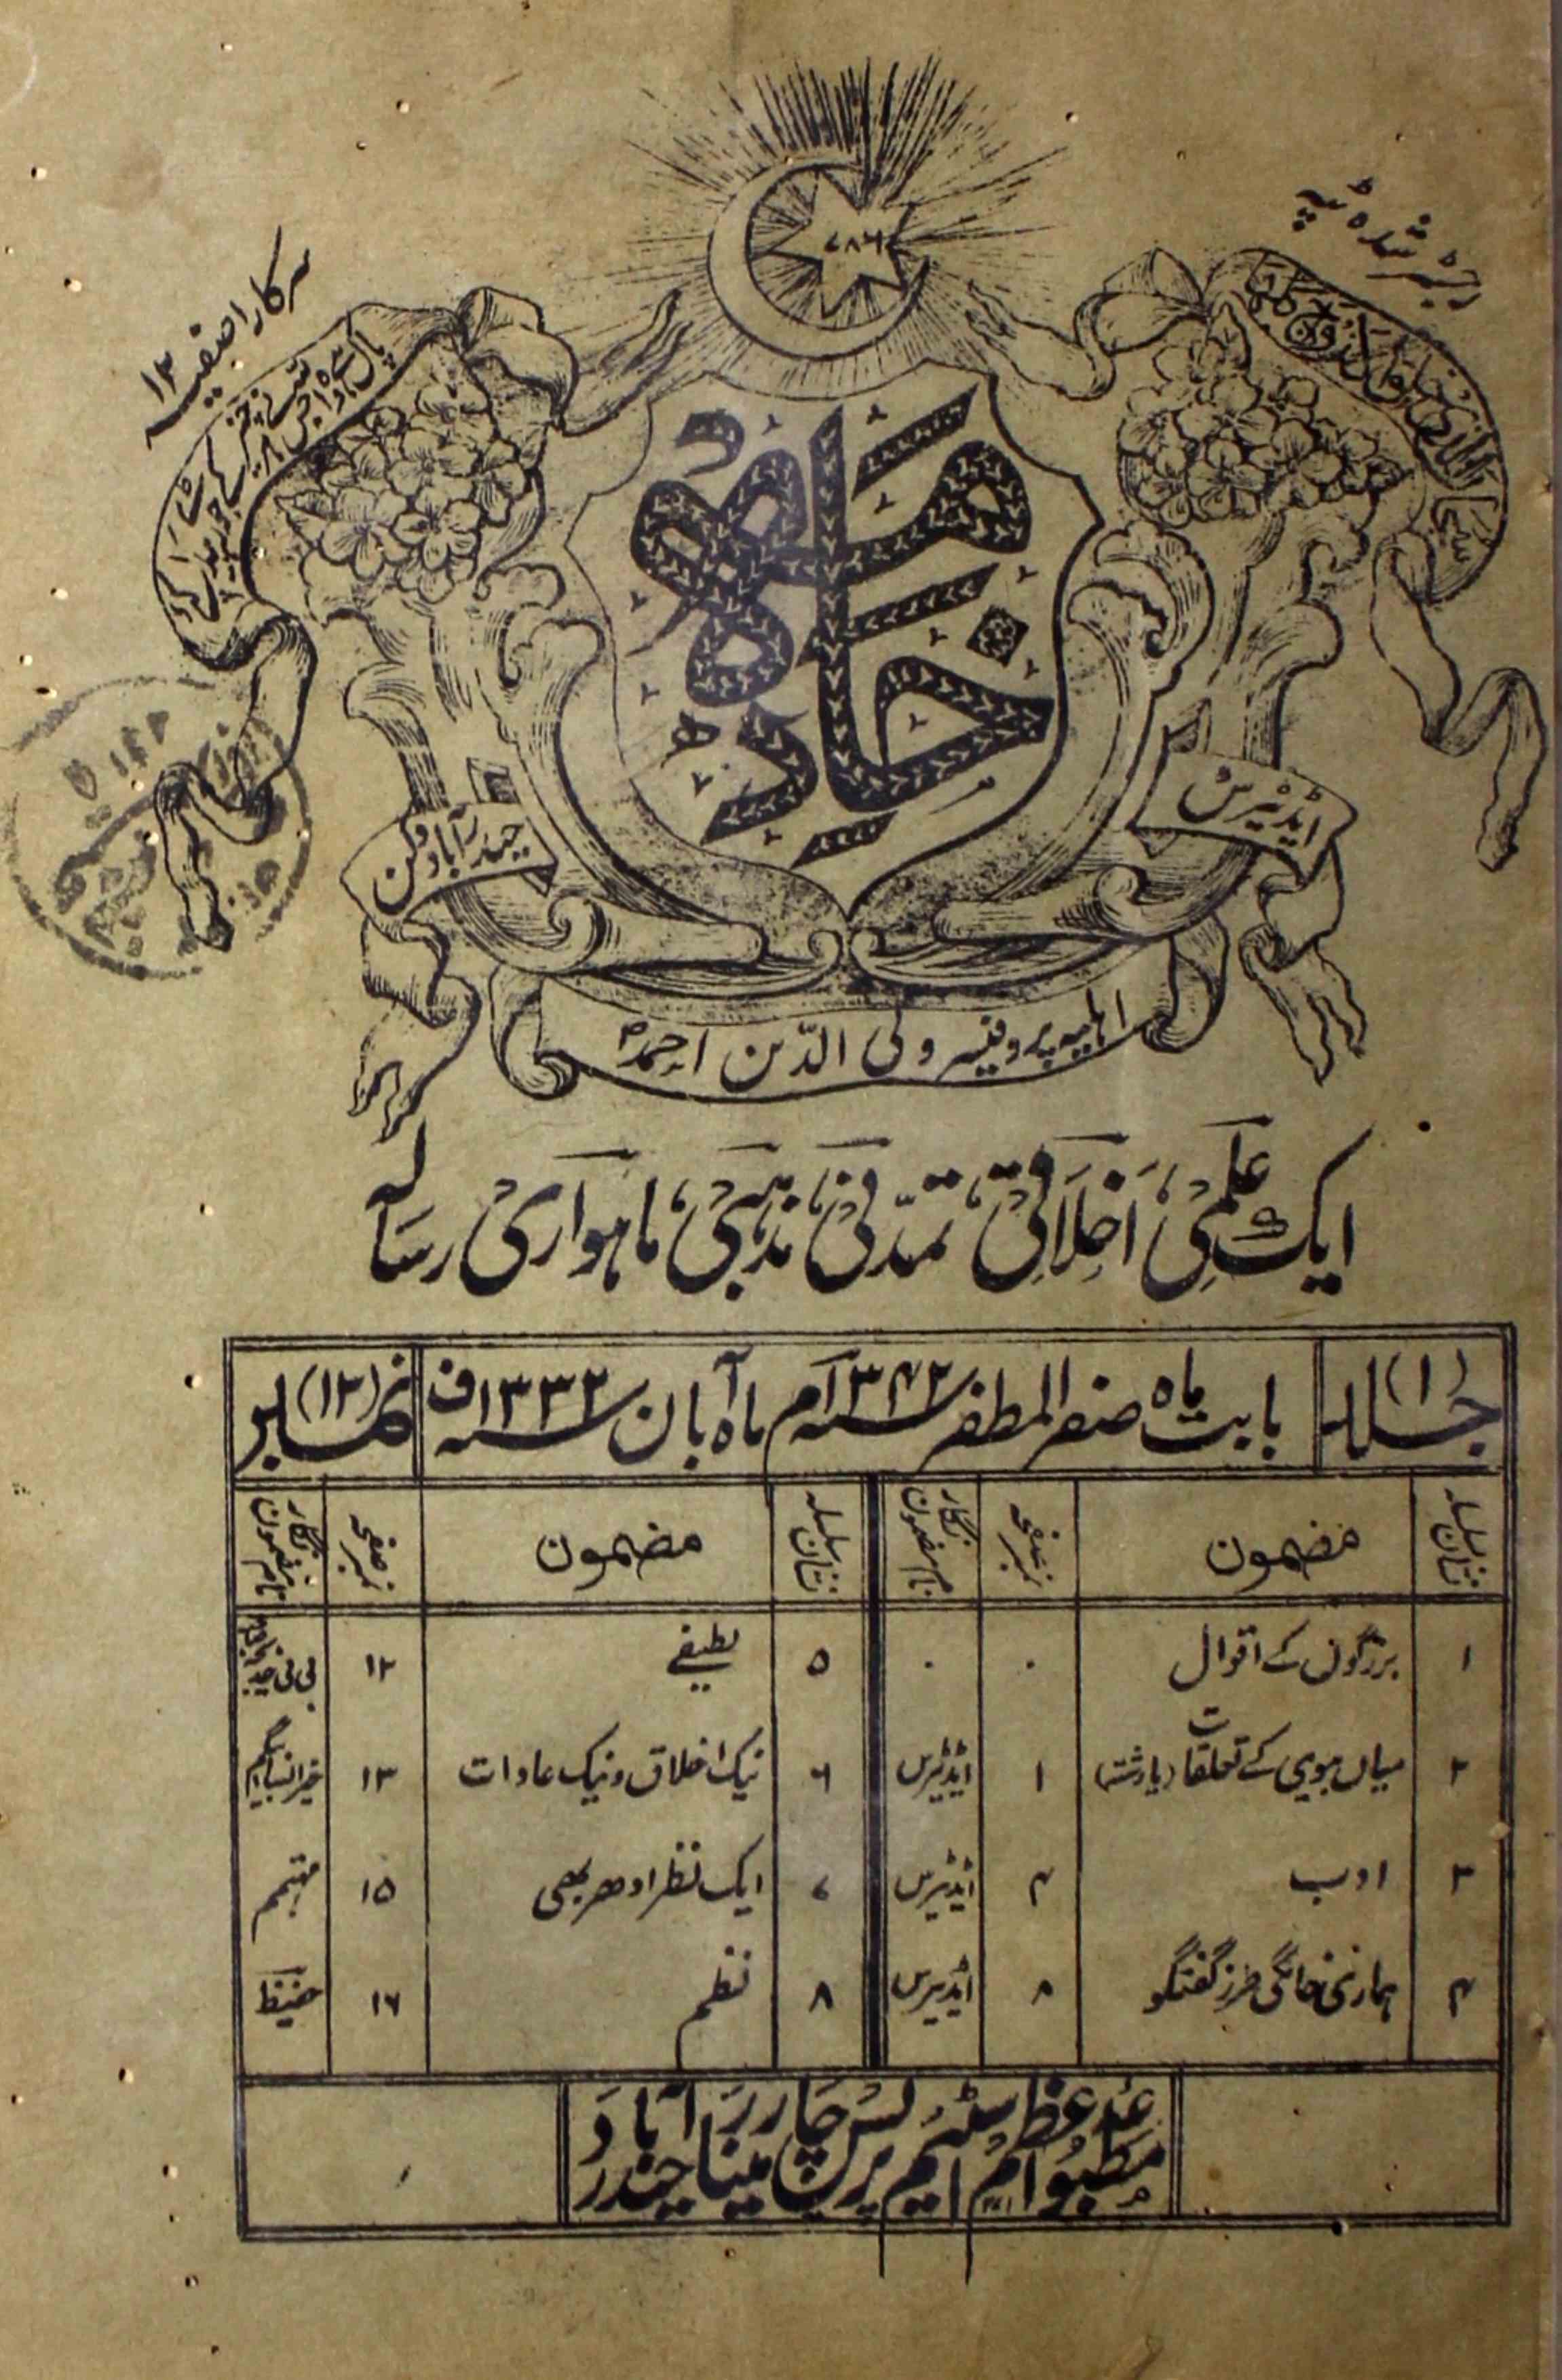 رجسٹر شدہ ٹپہ
سرکار آصفیہ ۱۲
۷۸۶
خادمہ
ایڈیٹرس
حیدرآباد دکن
اہلیہ پروفیسر ولی الدّین احمد
ایک علمی، اخلاقی، تمدّنی، مذہبی، ماہواری رسالہ
جلد (۱)
بابت ماہ صفر المظفر سنہ ۱۳۴۲م ماہ آبان سنہ ۱۳۳۲ف
نمبر (۱۲)
نشان سلسلہ مضمون نمبر صفحہ نام مضمون نگار نشان سلسلہ مضمون نمبر صفحہ نام مضمون نگار
۱ بزرگوں کے اقوال ۰ ۰ ۵ لطیفے ۱۲
۲ میاں بیوی کے تعلقات ۱ ایڈیٹرس ۶ نیک اخلاق و نیک عادات ۱۳ خیر النساء بیگم
۳ ادب ۴ ایڈیٹرس ۷ ایک نظر ادھر بھی ۱۵ مہتمم
۴ ہماری خانگی طرز گفتگو ۸ ایڈیٹرس ۸ نظم ۱۶ حفیظ
مطبوعہ اعظم اسٹیم پریس چارمینار حیدرآباد